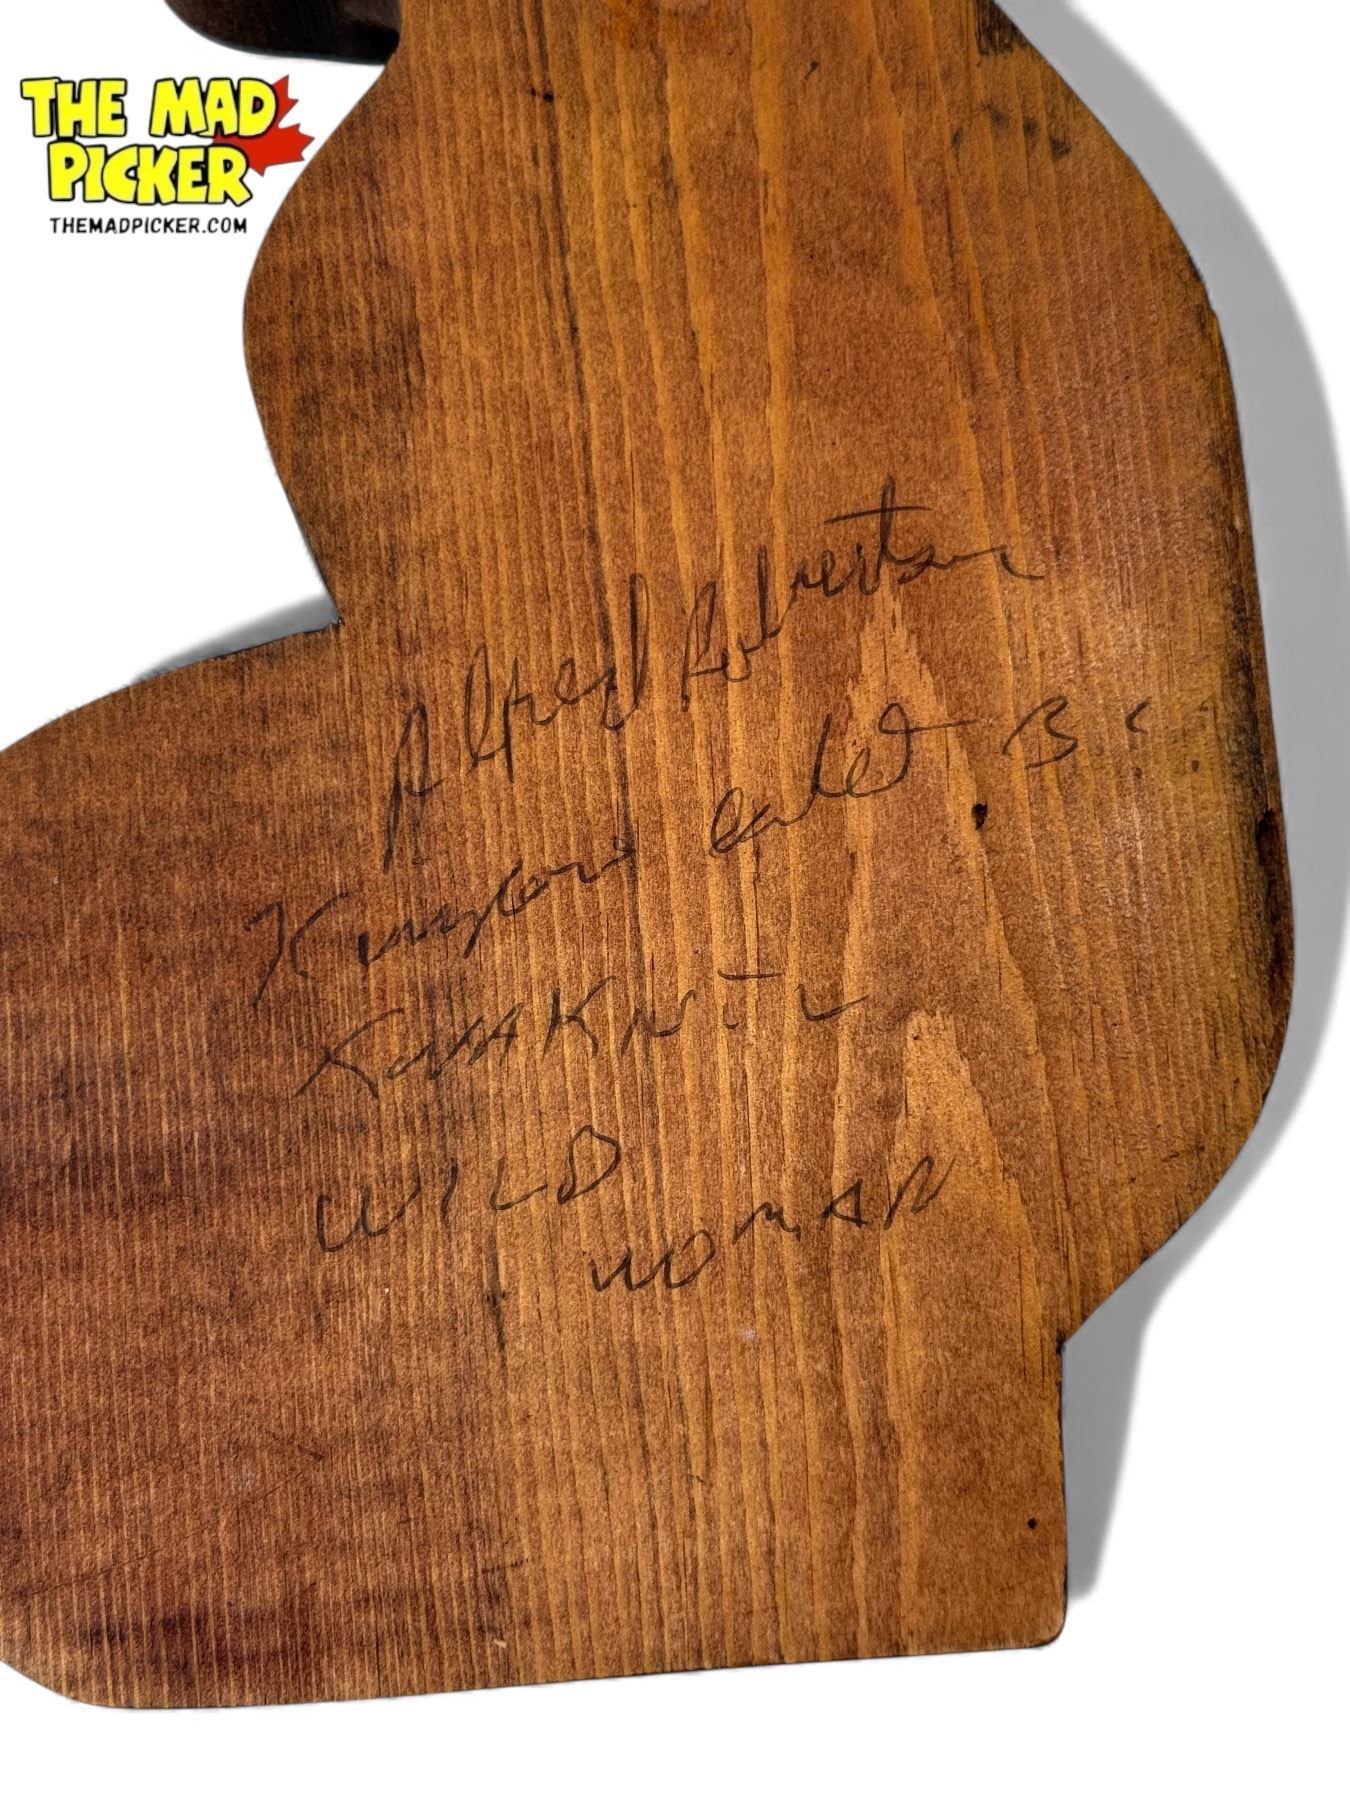 THE MAD
PICKER
THEMADPICKER.COM
Alfred Robertson
Kingcome Inlet B.C.
WILD
WOMAN